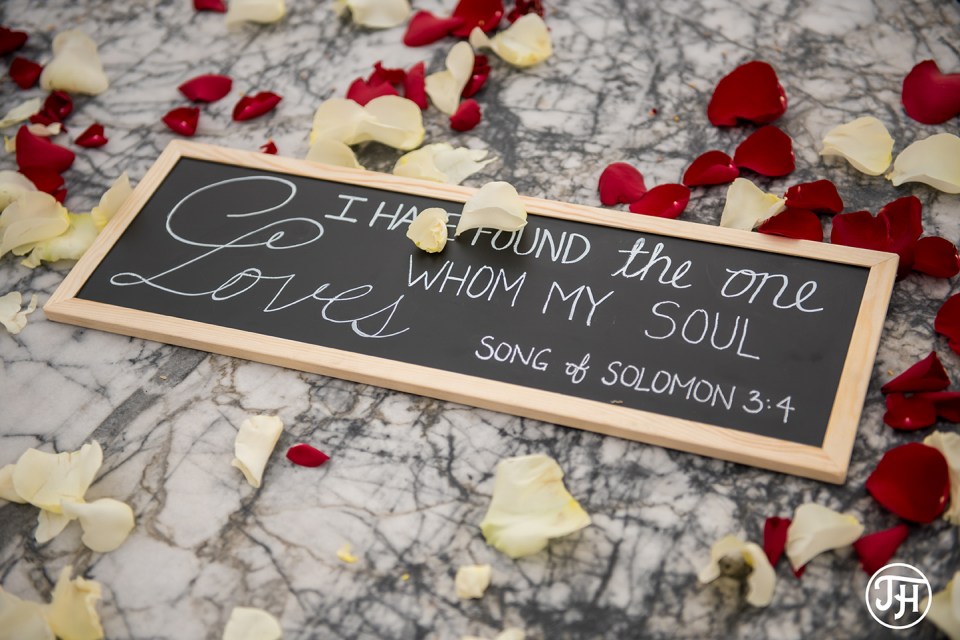 I HAVE FOUND the one
WHOM MY SOUL
Loves
SONG of SOLOMON 3:4
JH